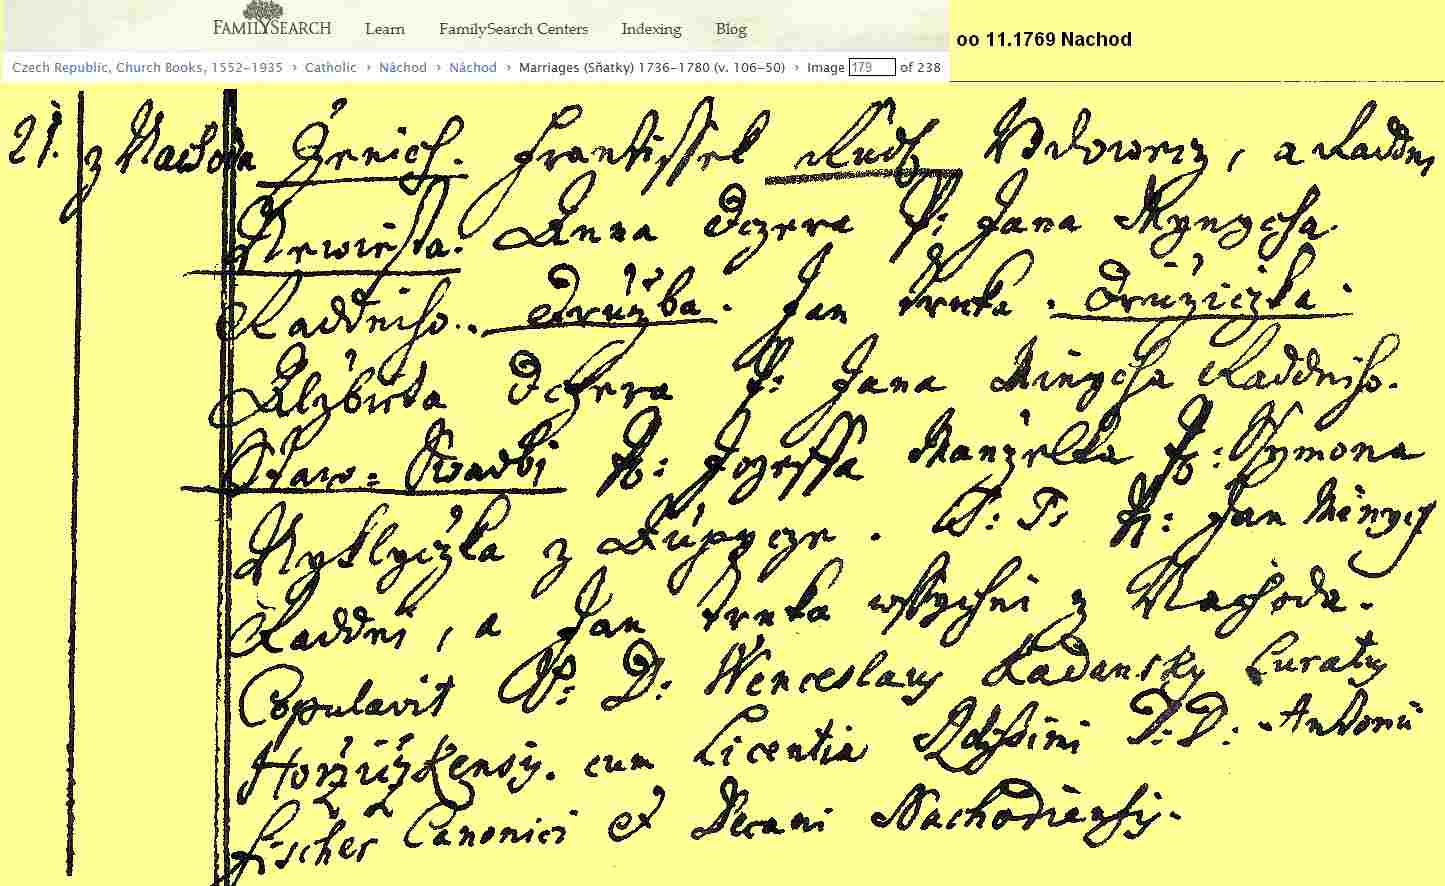 FAMILYSEARCH Learn FamilySearch Centers Indexing Blog
oo 11.1769 Nachod
Czech Republic, Church Books, 1552-1935 › Catholic › Náchod › Náchod › Marriages (Sňatky) 1736-1780 (v. 106-50) › Image 179 of 238
21. z Nachoda Ženich. Frantissek Rudl Wdowecz, a Raddni
Newiesta. Anna dczera P: Jana Mynycha
Raddniho. Družba. Jan Trnka. Družiczka.
Alžbieta dczera P: Jana Minycha Raddniho.
Staro= Swadbi P: Jozeffa Manželka P: Symona
Myklyczka z Dúpycze. S: T: P: Jan Minych
Raddni, a Jan Trnka wssychni z Nachoda.
Copulavit P: D: Wenceslaus Ladansky Curatus
Hořiczkensis. cum Licentia D: D: Antonii
Fischer Canonici et Decani Nachodiensis.